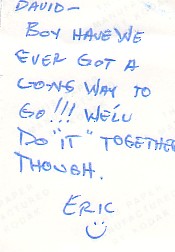 DAVID—
BOY HAVE WE
EVER GOT A
LONG WAY TO
GO!!! WE'LL
DO "IT" TOGETHER
THOUGH.
ERIC